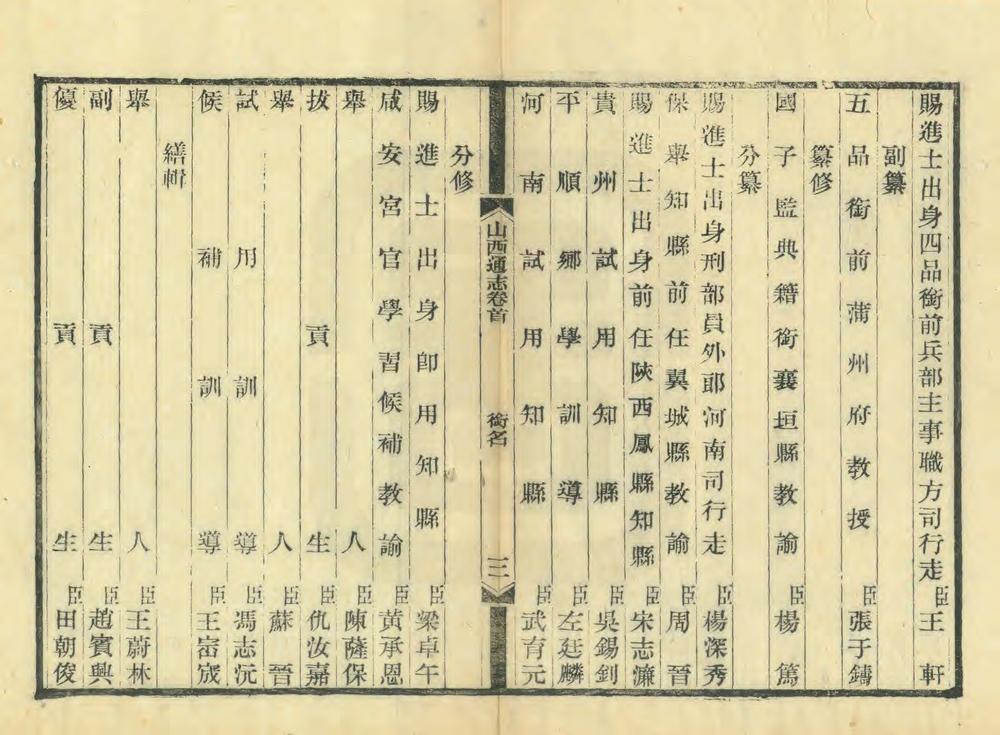 賜進士出身四品銜前兵部主事職方司行走臣王軒
副纂
五品銜前蒲州府教授臣張于鑄
纂修
國子監典籍銜襄垣縣教諭臣楊篤
分纂
賜進士出身刑部員外郎河南司行走臣楊深秀
保舉知縣前任翼城縣教諭臣周晉
賜進士出身前任陝西鳳縣知縣臣宋志濂
貴州試用知縣臣吳錫釗
平順鄉學訓導臣左廷麟
河南試用知縣臣武育元
山西通志卷首
銜名
三
分修
賜進士出身即用知縣臣梁卓午
咸安宮官學習候補教諭臣黃承恩
舉人臣陳薩保
拔貢生臣仇汝嘉
舉人臣蘇晉
試用訓導臣馮志沅
候補訓導臣王宬
繕輯
舉人臣王蔚林
副貢生臣趙賓興
優貢生臣田朝俊